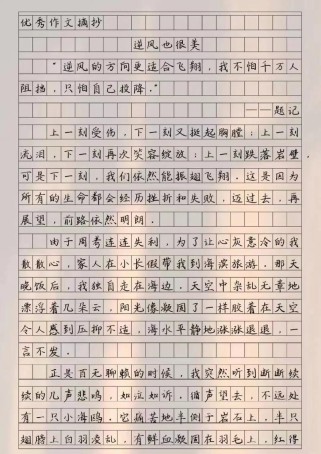 优秀作文摘抄
逆风也很美
“逆风的方向更适合飞翔，我不怕千万人
阻挡，只怕自己投降。”
——题记
上一刻受伤，下一刻又挺起胸膛；上一刻
流泪，下一刻再次笑容绽放；上一刻跌落岩壁，
可是下一刻，我们依然能振翅飞翔。这是因为
所有的生命都会经历挫折和失败，迈过去，再
展望，前路依然明朗。
由于周考连连失利，为了让心灰意冷的我
散散心，家人在小长假带我到海滨旅游。那天
晚饭后，我独自走在海边，天空中杂乱无章地
漂浮着几朵云，阳光像凝固了一样胶着在天空
令人感到压抑不适，海水平静地涨涨退退，一
言不发。
正是百无聊赖的时候，我突然听到断断续
续的几声悲鸣，如泣如诉，循声望去，不远处
有一只小海鸥，它痛苦地半倒于岩石上，半只
翅膀上白羽凌乱，有鲜血凝固在羽毛上，红得